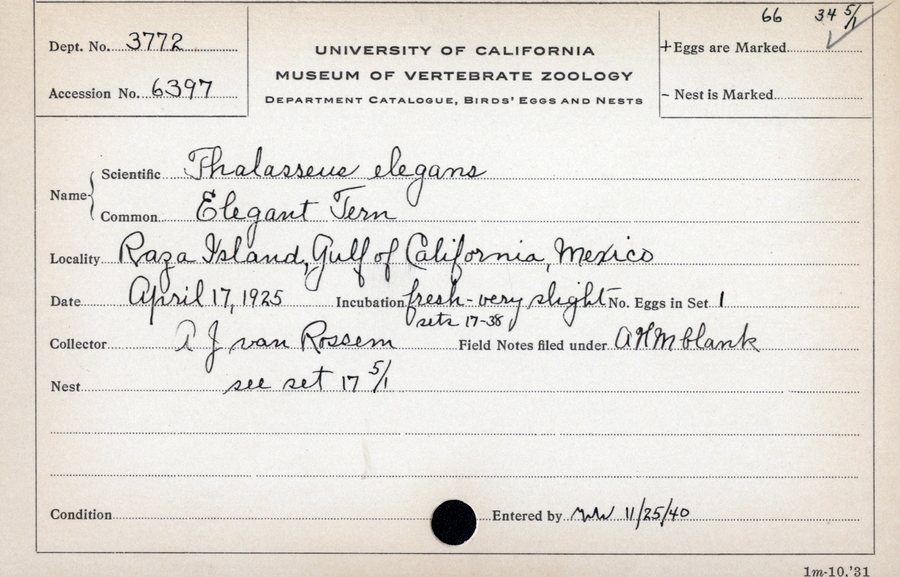 66 34 5/1
Dept. No. 3772
UNIVERSITY OF CALIFORNIA
MUSEUM OF VERTEBRATE ZOOLOGY
DEPARTMENT CATALOGUE, BIRDS' EGGS AND NESTS
+ Eggs are Marked
Accession No. 6397
- Nest is Marked
Name
Scientific Thalasseus elegans
Common Elegant Tern
Locality Raza Island, Gulf of California, Mexico
Date April 17, 1925 Incubation fresh-very slight No. Eggs in Set 1
sets 17-38
Collector A J van Rossem Field Notes filed under AHM blank
Nest see set 17 5/1
Condition
Entered by 11/25/40
1m-10,'31